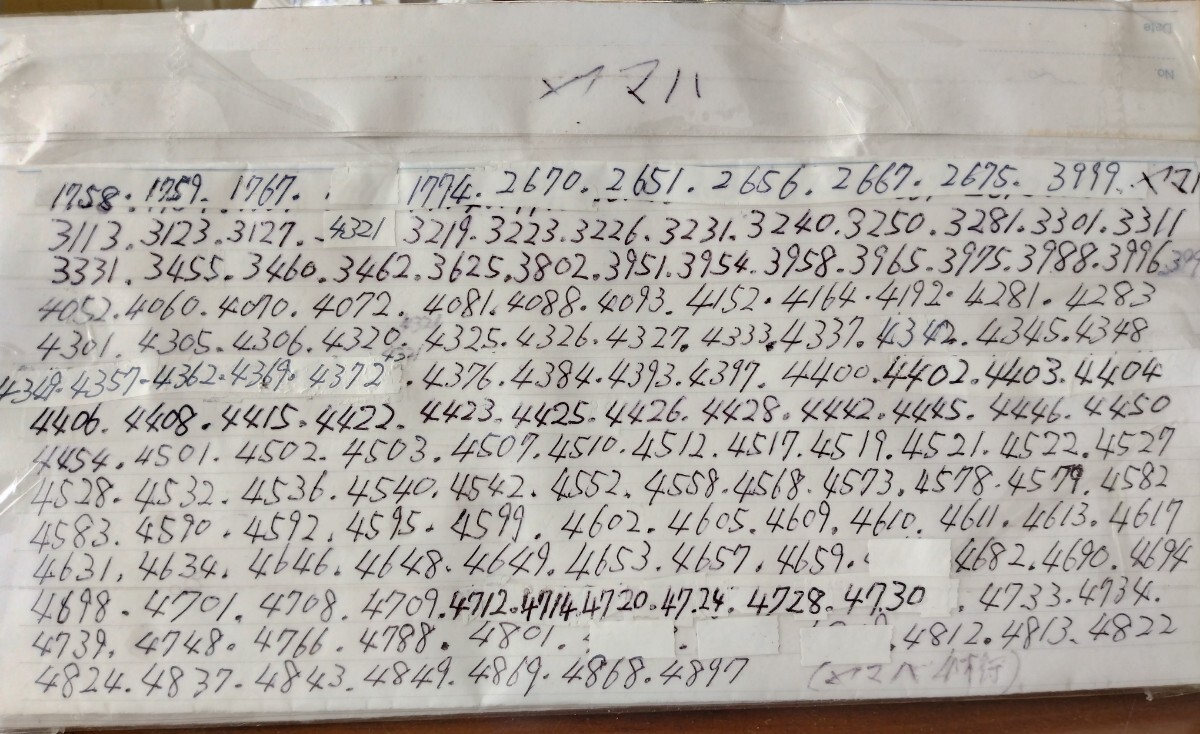 ヤマハ
1758. 1759. 1767. 1774. 2670. 2651. 2656. 2667. 2675. 3999.
3113. 3123. 3127. 4321 3219. 3223. 3226. 3231. 3240. 3250. 3281. 3301. 3311
3331. 3455. 3460. 3462. 3625. 3802. 3951. 3954. 3958. 3965. 3975. 3988. 3996
4052. 4060. 4070. 4072. 4081. 4088. 4093. 4152. 4164. 4192. 4281. 4283
4301. 4305. 4306. 4320. 4325. 4326. 4327. 4333. 4337. 4342. 4345. 4348
4349. 4357. 4362. 4369. 4372. 4376. 4384. 4393. 4397. 4400. 4402. 4403. 4404
4406. 4408. 4415. 4422. 4423. 4425. 4426. 4428. 4442. 4445. 4446. 4450
4454. 4501. 4502. 4503. 4507. 4510. 4512. 4517. 4519. 4521. 4522. 4527
4528. 4532. 4536. 4540. 4542. 4552. 4558. 4568. 4573. 4578. 4579. 4582
4583. 4590. 4592. 4595. 4599. 4602. 4605. 4609. 4610. 4611. 4613. 4617
4631. 4634. 4646. 4648. 4649. 4653. 4657. 4659. 4682. 4690. 4694
4698. 4701. 4708. 4709. 4712. 4714. 4720. 4724. 4728. 4730. 4733. 4734.
4739. 4748. 4766. 4788. 4801. 4812. 4813. 4822
4824. 4837. 4843. 4849. 4869. 4868. 4897